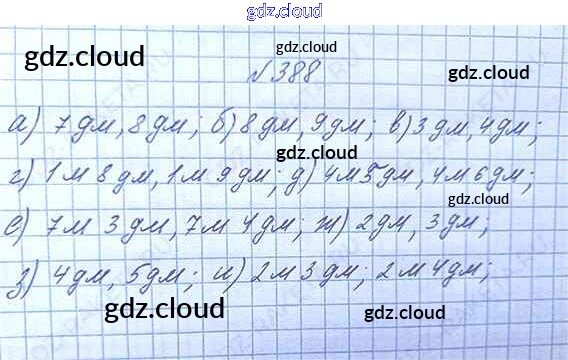 gdz.cloud
gdz.cloud
gdz.cloud
gdz.cloud
№388
а) 7дм, 8дм; б) 8дм, 9дм; в) 3дм, 4дм;
gdz.cloud
г) 1м 8дм, 1м 9дм; д) 4м 5дм, 4м 6дм;
gdz.cloud
е) 7м 3дм, 7м 4дм; ж) 2дм, 3дм;
з) 4дм, 5дм; и) 2м 3дм; 2м 4дм;
gdz.cloud
gdz.cloud